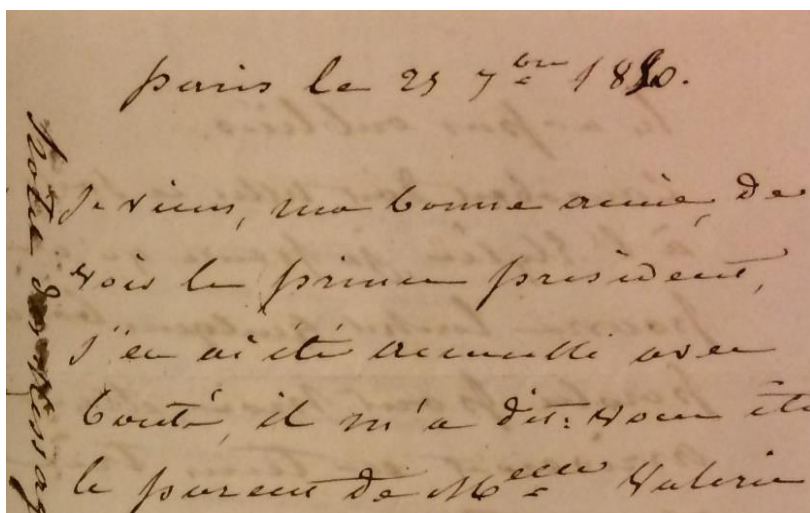 paris le 25 7bre 18 0.
Je viens, ma bonne amie, de
voir le premier président,
j'en ai été accueilli avec
bonté, il m'a dit: vous ête
le parent de Melle Valerie